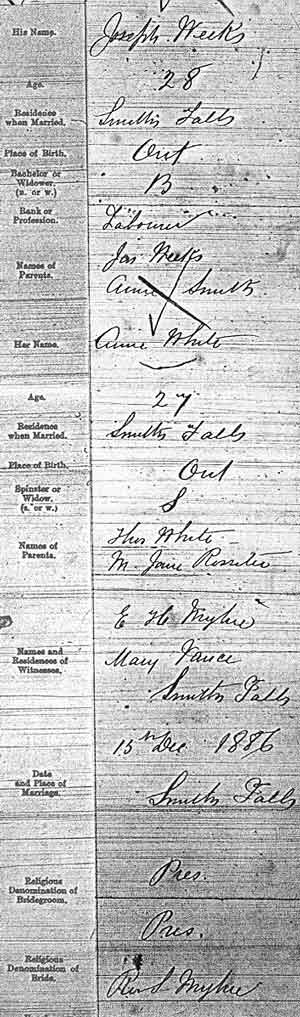 His Name. Joseph Weeks
Age. 28
Residence when Married. Smiths Falls
Place of Birth. Ont
Bachelor or Widower. (B. or W.) B
Rank or Profession. Labourer
Names of Parents. Jas Weeks
Annie Smith
Her Name. Annie White
Age. 27
Residence when Married. Smiths Falls
Place of Birth. Ont
Spinster or Widow. (S. or W.) S
Names of Parents. Thos White
M. Jane Rossiter
Names and Residences of Witnesses. E H Mylne
Mary Vance
Smiths Falls
Date and Place of Marriage. 15th Dec 1886
Smiths Falls
Religious Denomination of Bridegroom. Pres.
Religious Denomination of Bride. Pres.
Rev S Mylne